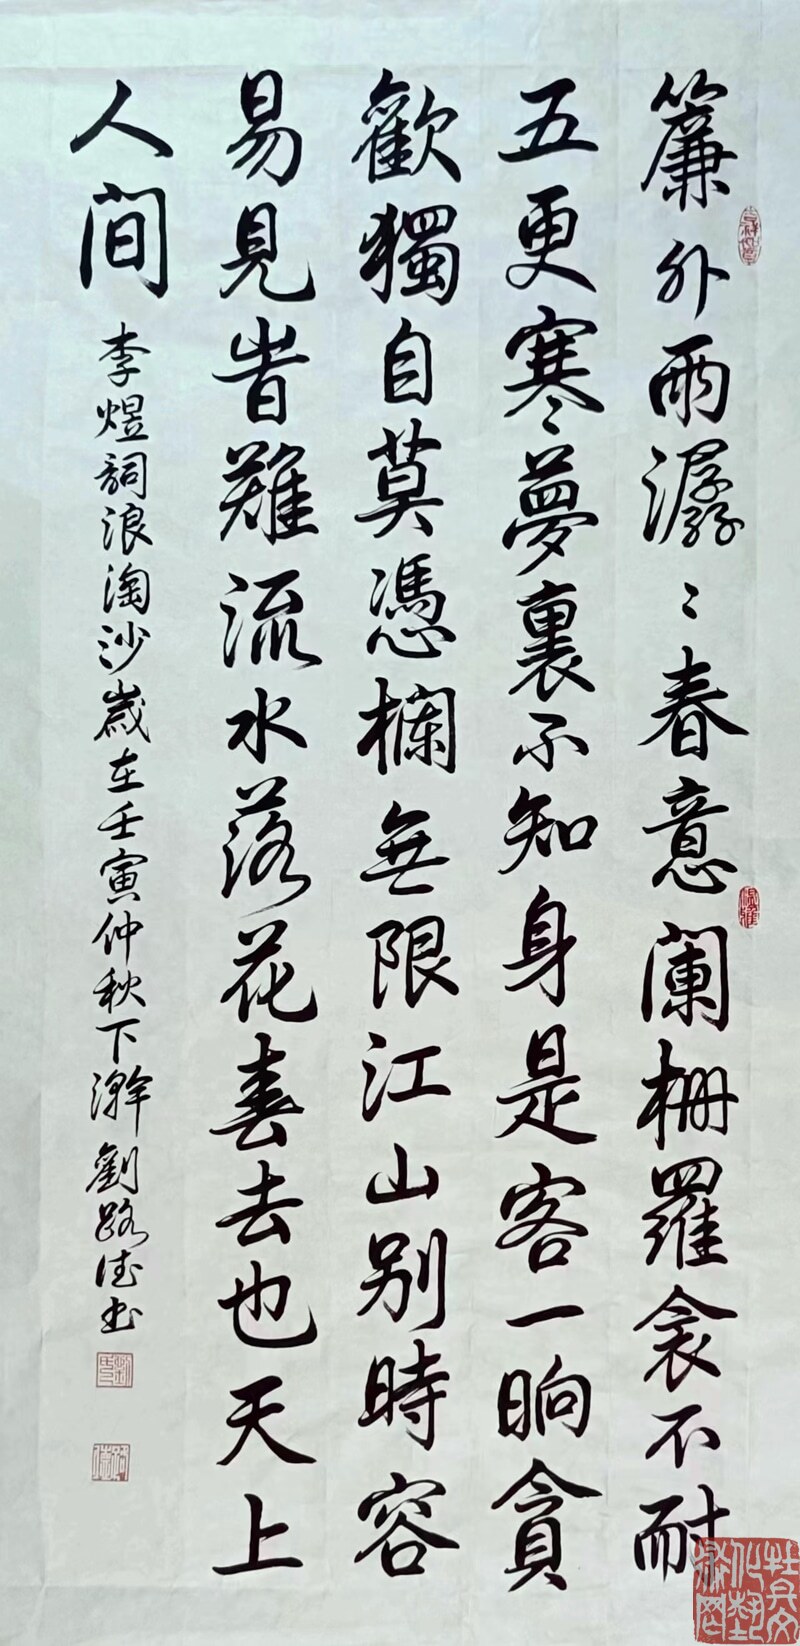 簾外雨潺〻春意闌柵羅衾不耐
五更寒夢裏不知身是客一晌貪
歡獨自莫憑欄無限江山別時容
易見旹難流水落花春去也天上
人間
李煜詞浪淘沙歲在壬寅仲秋下澣劉路德書